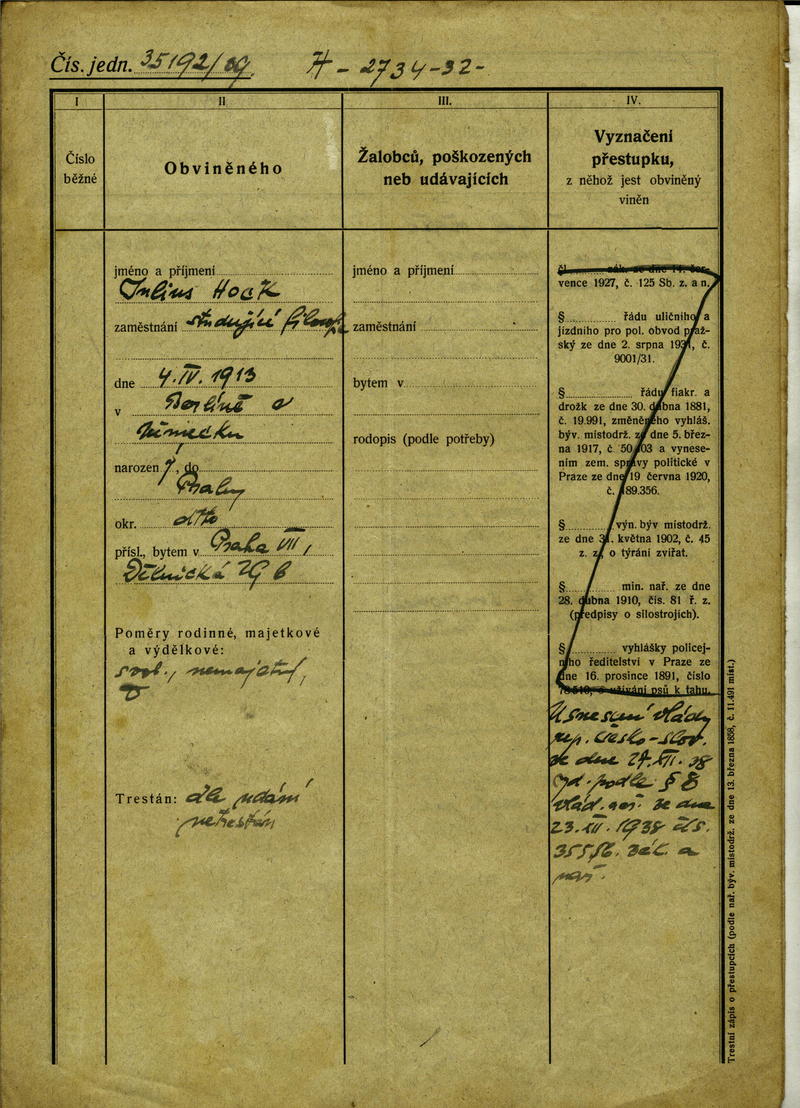 Čís. jedn. 35192/39. H-2734-32-
I
II
III.
IV.
Číslo
běžné
Obviněného
Žalobců, poškozených
neb udávajících
Vyznačení
přestupku,
z něhož jest obviněný
viněn
jméno a příjmení
Julius Hock
zaměstnání studující filosof.
dne 4.IV. 1913
v Berlíně v
Německu
narozen ý, do
Prahy
okr. dtto
přísl., bytem v Praha VII,
Dělnická 29 b
Poměry rodinné, majetkové
a výdělkové:
svob., nemajetný,
Trestán: dle udání
netrestán
jméno a příjmení
zaměstnání
bytem v
rodopis (podle potřeby)
čl. zák. ze dne 14. čer-
vence 1927, č. 125 Sb. z. a n.
§ řádu uličního a
jízdního pro pol. obvod praž-
ský ze dne 2. srpna 1931, č.
9001/31.
§ řádu fiakr. a
drožk ze dne 30. dubna 1881,
č. 19.991, změněného vyhláš.
býv. místodrž. ze dne 5. břez-
na 1917, č. 50.403 a vynese-
ním zem. správy politické v
Praze ze dne 19 června 1920,
č. 189.356.
§ výn. býv místodrž.
ze dne 31. května 1902, č. 45
z. z., o týrání zvířat.
§ min. nař. ze dne
28. dubna 1910, čís. 81 ř. z.
(předpisy o silostrojích).
§ vyhlášky policej-
ního ředitelství v Praze ze
dne 16. prosince 1891, číslo
o užívání psů k tahu.
Usnesení vlády
rep. Česko-Slov.
ze dne XII. 38
podle § 8
vlád. nař. ze dne
23. XII. 1938 čís.
zák. a
nař.
Trestní zápis o přestupcích (podle nař. býv. místodrž. ze dne 13. března 1858, č. 11.491 míst.)